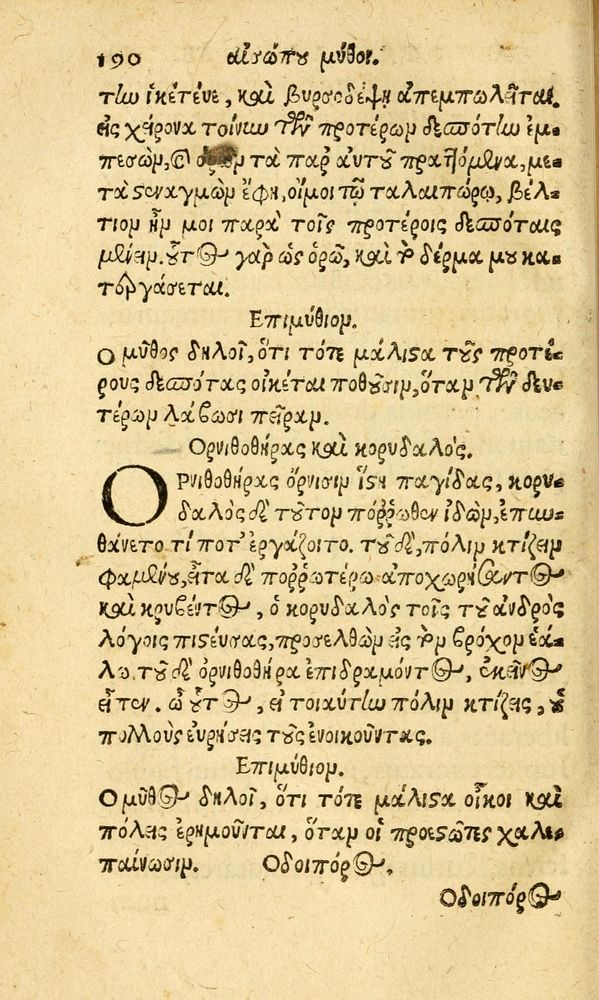 190 αἰσώπου μῦθοι.
τὴν ἱκέτευε, καὶ βυρσοδέψῃ ἀπεμπωλεῖται.
εἰς χείρονα τοίνυν τῶν προτέρων δεσπότην ἐμ-
πεσὼν, καὶ ὁρῶν τὰ παρ' αὐτοῦ πραττόμενα, με-
τὰ στεναγμῶν ἔφη, οἴμοι τῷ ταλαιπώρῳ, βέλ-
τιον ἦν μοι παρὰ τοῖς προτέροις δεσπόταις
μένειν. οὗτος γὰρ ὡς ὁρῶ, καὶ τὸ δέρμα μου κα-
τεργάσεται.
Επιμύθιον.
Ο μῦθος δηλοῖ, ὅτι τότε μάλιστα τοὺς προτέ-
ρους δεσπότας οἰκέται ποθοῦσιν, ὅταν τῶν δευ-
τέρων λάβωσι πεῖραν.
Ορνιθοθήρας καὶ κορυδαλός.
ΟΡνιθοθήρας ὄρνισιν ἵστη παγίδας, κορυ-
δαλὸς δὲ τοῦτον πόῤῥωθεν ἰδὼν, ἐπυν-
θάνετο τί ποτ' ἐργάζοιτο. τοῦ δὲ, πόλιν κτίζειν
φαμένου, εἶτα δὲ ποῤῥωτέρω ἀποχωρήσαντος
καὶ κρυβέντος, ὁ κορυδαλὸς τοῖς τοῦ ἀνδρὸς
λόγοις πιστεύσας, προσελθὼν εἰς τὸν βρόχον ἑά-
λω. τοῦ δὲ ὀρνιθοθήρα ἐπιδραμόντος, ἐκεῖνος
εἶπεν. ὦ οὗτος, εἰ τοιαύτην πόλιν κτίζεις, οὐ
πολλοὺς εὑρήσεις τοὺς ἐνοικοῦντας.
Επιμύθιον.
Ο μῦθος δηλοῖ, ὅτι τότε μάλιστα οἶκοι καὶ
πόλεις ἐρημοῦνται, ὅταν οἱ προεστῶτες χαλε-
παίνωσιν. Οδοιπόρος.
Οδοιπόρος